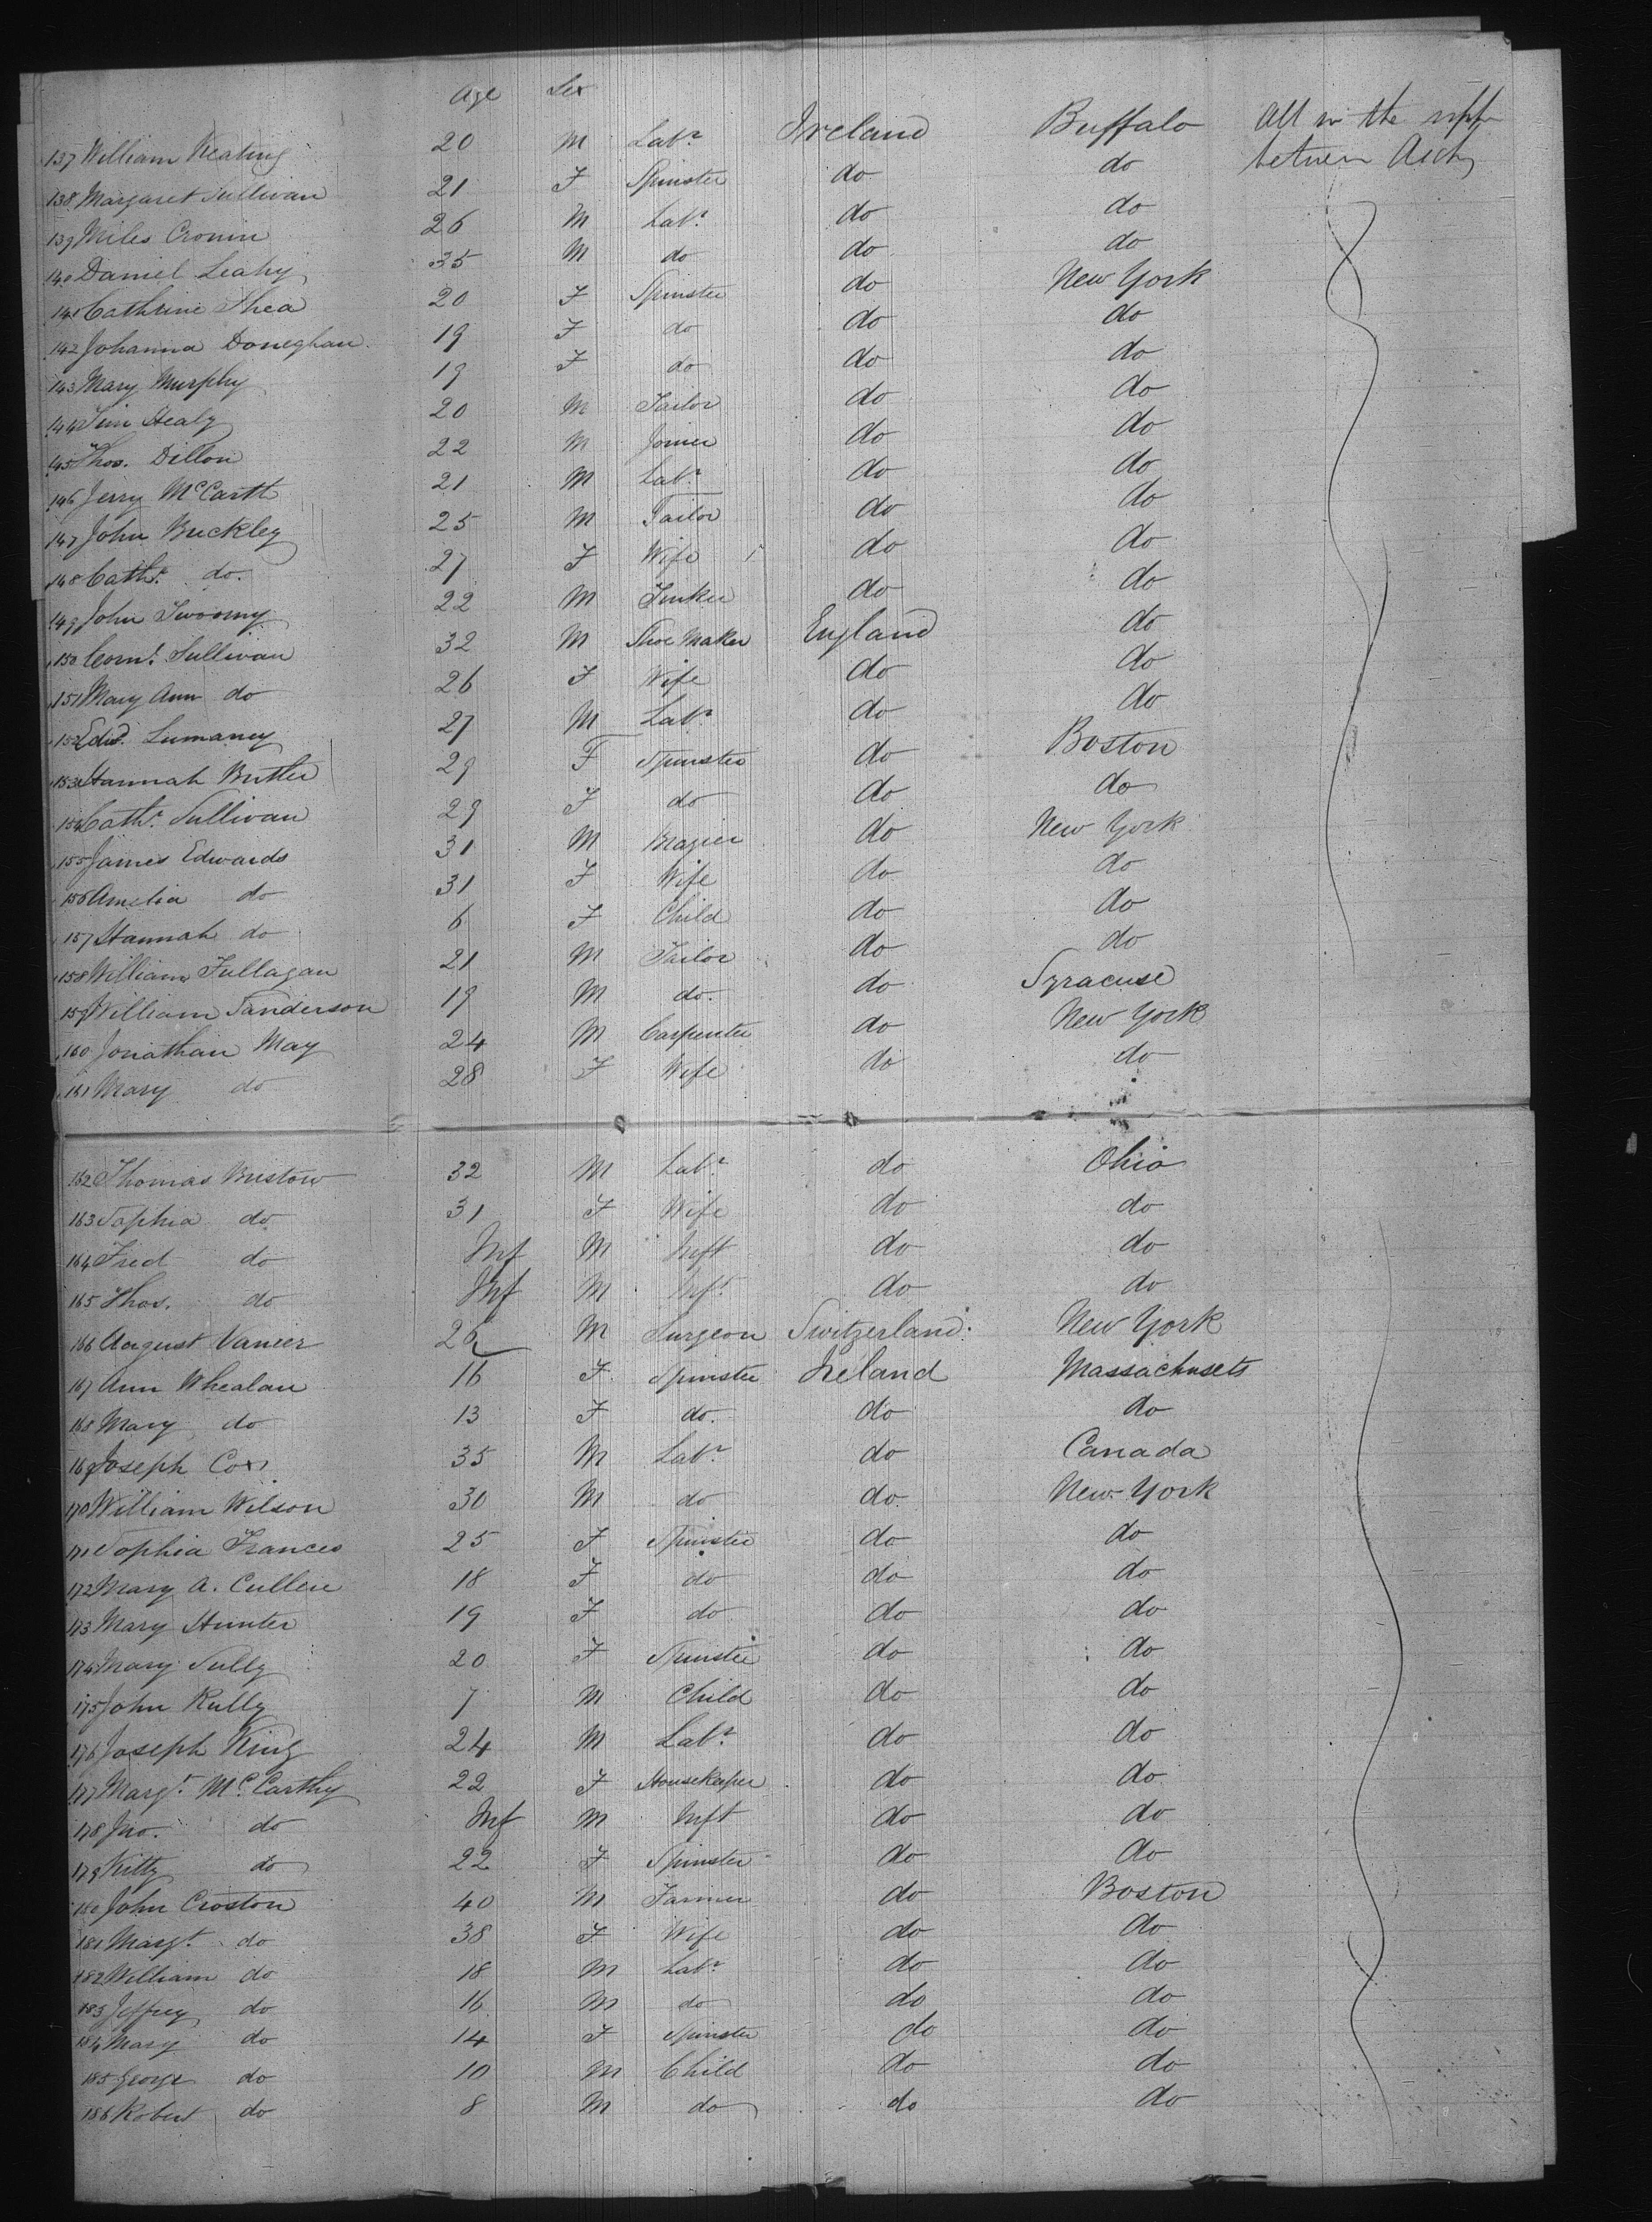 Age Sex
137 William Keating 20 M Labr Ireland Buffalo All in the upper
138 Margaret Sullivan 21 F Spinster do do between Deck
139 Miles Cronin 26 M Labr do do
140 Daniel Leahy 35 M do do do
141 Cathrine Shea 20 F Spinster do New York
142 Johanna Doneghan 19 F do do do
143 Mary Murphy 19 F do do do
144 Tim Healy 20 M Tailor do do
145 Thos. Dillon 22 M Joiner do do
146 Jerry McCarth 21 M Labr do do
147 John Buckley 25 M Tailor do do
148 Cathr do. 27 F Wife do do
149 John Twoomy 22 M Tinker do do
150 Corns. Sullivan 32 M Shoe Maker England do
151 Mary Ann do 26 F Wife do do
152 Edwd. Lumaney 27 M Labr do do
153 Hannah Butler 29 F Spinster do Boston
154 Cathr Sullivan 29 F do do do
155 James Edwards 31 M Brazier do New York
156 Amelia do 31 F Wife do do
157 Hannah do 6 F Child do do
158 William Fullagan 21 M Tailor do do
159 William Sanderson 19 M do. do Syracuse
160 Jonathan May 24 M Carpenter do New York
161 Mary do 28 F Wife do do
162 Thomas Bristow 32 M Labr do Ohio
163 Sophia do 31 F Wife do do
164 Fred do Inf M Inft do do
165 Thos. do Inf M Inft do do
166 August Vaneer 26 M Surgeon Switzerland New York
167 Ann Whealan 16 F Spinster Ireland Massachusets
168 Mary do 13 F do. do do
169 Joseph Cox 35 M Labr do Canada
170 William Wilson 30 M do do New York
171 Sophia Frances 25 F Spinster do do
172 Mary A. Cullen 18 F do do do
173 Mary Hunter 19 F do do do
174 Mary Sully 20 F Spinster do do
175 John Kully 7 M Child do do
176 Joseph King 24 M Labr do do
177 Margt. McCarthy 22 F Housekeeper do do
178 Jno. do Inf M Inft do do
179 Kitty do 22 F Spinster do do
180 John Croston 40 M Farmer do Boston
181 Margt. do 38 F Wife do do
182 William do 18 M Labr do do
183 Jeffrey do 16 M do do do
184 Mary do 14 F Spinster do do
185 George do 10 M Child do do
186 Robert do 8 M do do do